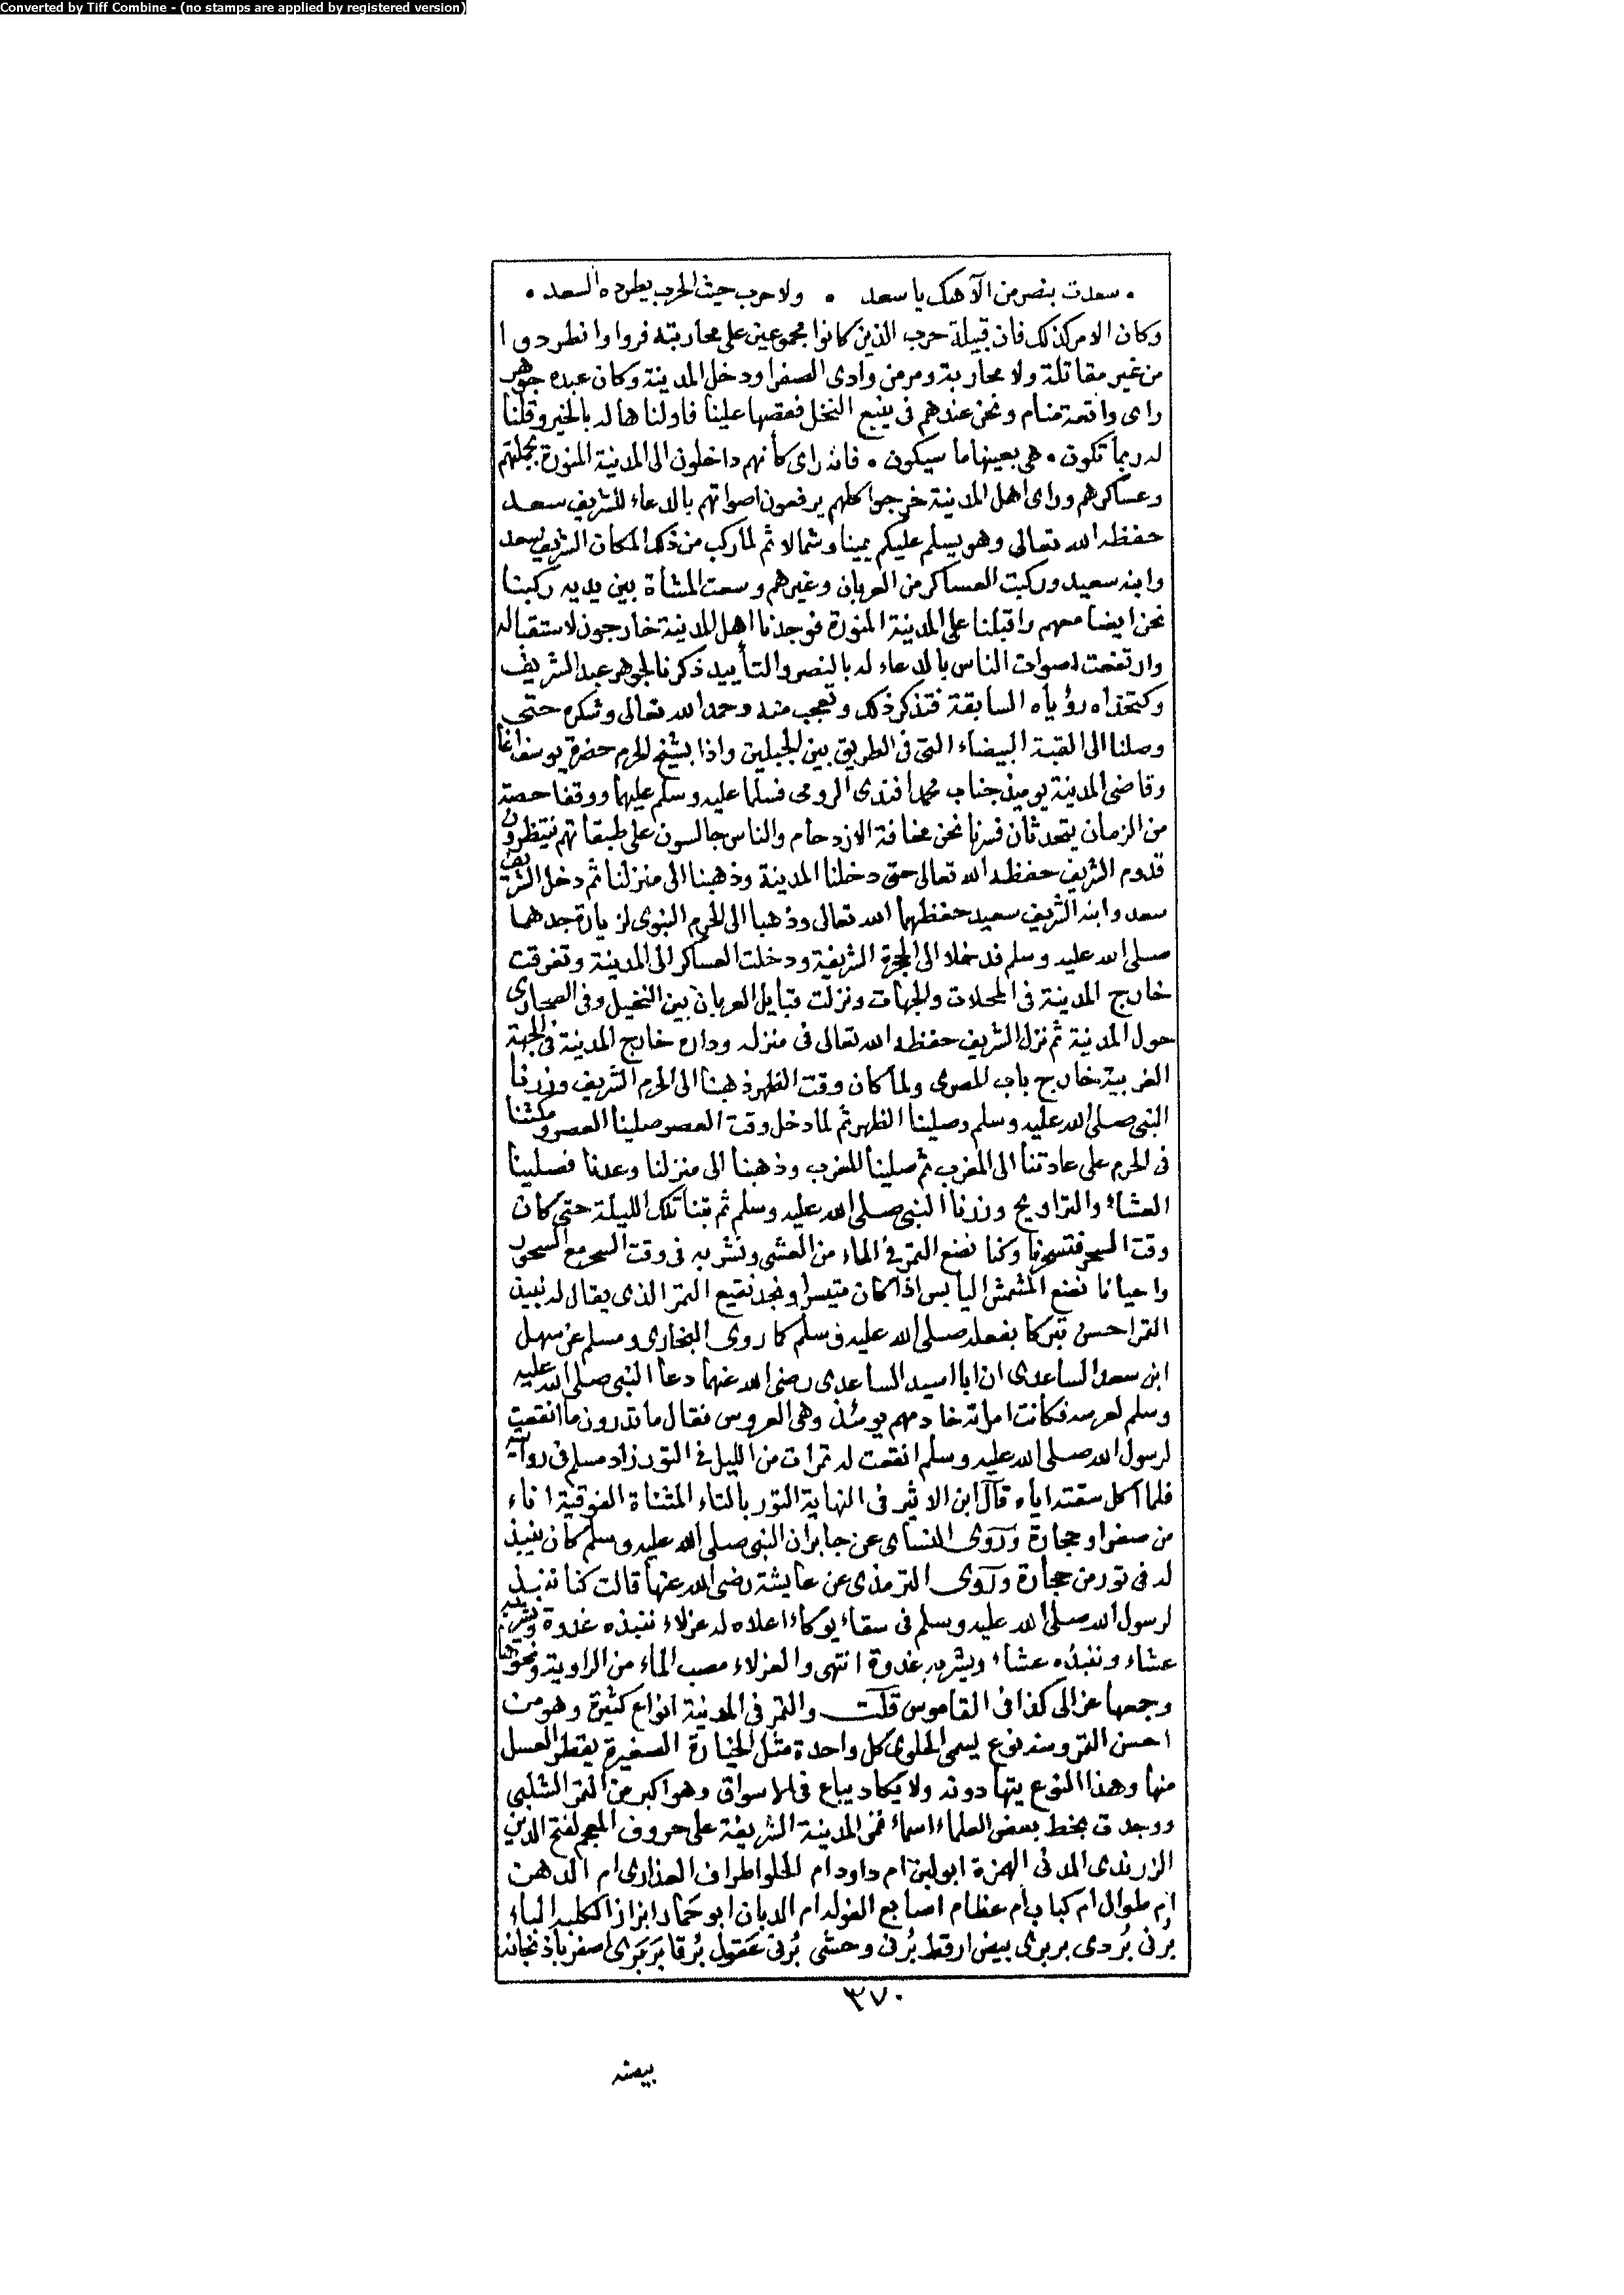 Converted by Tiff Combine - (no stamps are applied by registered version)
• سعدت بنصر من الاهك يا سعد • ولا حرب حيث الحرب يطرده السعد •
وكان الامر كذلك فان قبيلة حرب الذين كانوا مجموعين على محاربته فروا وانطردوا
من غير مقاتلة ولا محاربة ومر من وادى الصفرا ودخل المدينة وكان عبده جوهر
راى واقعة منام ونحن عندهم فى ينبع النخل فقصها علينا فاولناها له بالخير وقلنا
له ربما تكون • هى بعينها ما سيكون • فانه راى كأنهم داخلون الى المدينة المنورة بجملتهم
وعساكرهم وراى اهل المدينة خرجوا كلهم يرفعون اصواتهم بالدعاء للشريف سعد
حفظه الله تعالى وهو يسلم عليكم يمينا وشمالا ثم لما ركب من ذلك المكان الشريف سعد
وابنه سعيد وركبت العساكر من العربان وغيرهم وسعت المشاة بين يديه ركبنا
نحن ايضا معهم واقبلنا على المدينة المنورة فوجدنا اهل المدينة خارجون لاستقباله
وارتفعت اصوات الناس بالدعاء له بالنصر والتأييد ذكرنا لجوهر عبد الشريف
وكتخداه رؤياه السابقة فتذكر ذلك وتعجب منه وحمد الله تعالى وشكره حتى
وصلنا الى القبة البيضاء التى فى الطريق بين الجبلين واذا بشيخ الحرم حضرة يوسف اغا
وقاضى المدينة يوميذ جناب محمد افندى الرومى فسلما عليه وسلم عليهما ووقفا حصة
من الزمان يتحدثان فسرنا نحن مخافة الازدحام والناس جالسون على طبقاتهم ينتظرون
قدوم الشريف حفظه الله تعالى حتى دخلنا المدينة وذهبنا الى منزلنا ثم دخل الشريف
سعد وابنه الشريف سعيد حفظهما الله تعالى وذهبا الى الحرم النبوى لزيارة جدهما
صلى الله عليه وسلم فدخلا الى الحجرة الشريفة ودخلت العساكر الى المدينة وتفرقت
خارج المدينة فى المحلات والجهات ونزلت قبايل العربان بين النخيل وفى الصحارى
حول المدينة ثم نزل الشريف حفظه الله تعالى فى منزله وداره خارج المدينة فى الجهة
الغربية خارج باب المصرى ولما كان وقت الظهر ذهبنا الى الحرم الشريف وزرنا
النبى صلى الله عليه وسلم وصلينا الظهر ثم لما دخل وقت العصر صلينا العصر ومكثنا
فى الحرم على عادتنا الى المغرب ثم صلينا المغرب وذهبنا الى منزلنا وعدنا فصلينا
العشاء والتراويح وزرنا النبى صلى الله عليه وسلم ثم بتنا تلك الليلة حتى كان
وقت السحر فتسحرنا وكنا نضع التمر فى الماء من العشى ونشربه فى وقت السحر مع السحور
واحيانا نضع المشمش اليابس اذا كان متيسرا ونجد نقيع التمر الذى يقال له نبيذ
التمر احسن تبركا بفعله صلى الله عليه وسلم كما روى البخارى ومسلم عن سهل
ابن سعد الساعدى ان ابا اسيد الساعدى رضى الله عنهما دعا النبى صلى الله عليه
وسلم لعرسه فكانت امراته خادمهم يومئذ وهى العروس فقال ما تدرون ما انقعت
لرسول الله صلى الله عليه وسلم انقعت له تمرات من الليل فى التور زاد مسلم فى رواية
فلما اكل سقته اياه قال ابن الاثير فى النهاية التور بالتاء المثناة الفوقية اناء
من صفر او حجارة وروى النساى عن جابر ان النبى صلى الله عليه وسلم كان ينبذ
له فى تور من حجارة وروى الترمذى عن عايشة رضى الله عنها قالت كنا ننبذ
لرسول الله صلى الله عليه وسلم فى سقاء يوكاء اعلاه له عزلاء ننبذه غدوة ويشربه
عشاء وننبذه عشاء ويشربه غدوة انتهى والعزلاء مصب الماء من الراوية ونحوها
وجمعها عزالى كذا فى القاموس قلت والتمر فى المدينة انواع كثيرة وهو من
احسن التمر ومنه نوع يسمى الحلوى كل واحدة مثل الخيارة الصغيرة يقطر العسل
منها وهذا النوع يتهادونه ولا يكاد يباع فى الاسواق وهو اكبر من التمر الشلبى
ووجدت بخط بعض العلماء اسماء تمر المدينة الشريفة على حروف المعجم لفتح الدين
الزرندى المدنى الهمزة ابو لبن ام داود ام الحلو اطراف العذارى ام الدهن
ام طوال ام كباب ام عظام اصابع الغوله ام الدبان ابو حماد ابزاز الكلبه الباء
برنى بردى بربرى بيض ارقط برنى وحشى برنى عقول برقا بربرى اصفر باذنجانه
٣٧٠
بيضه